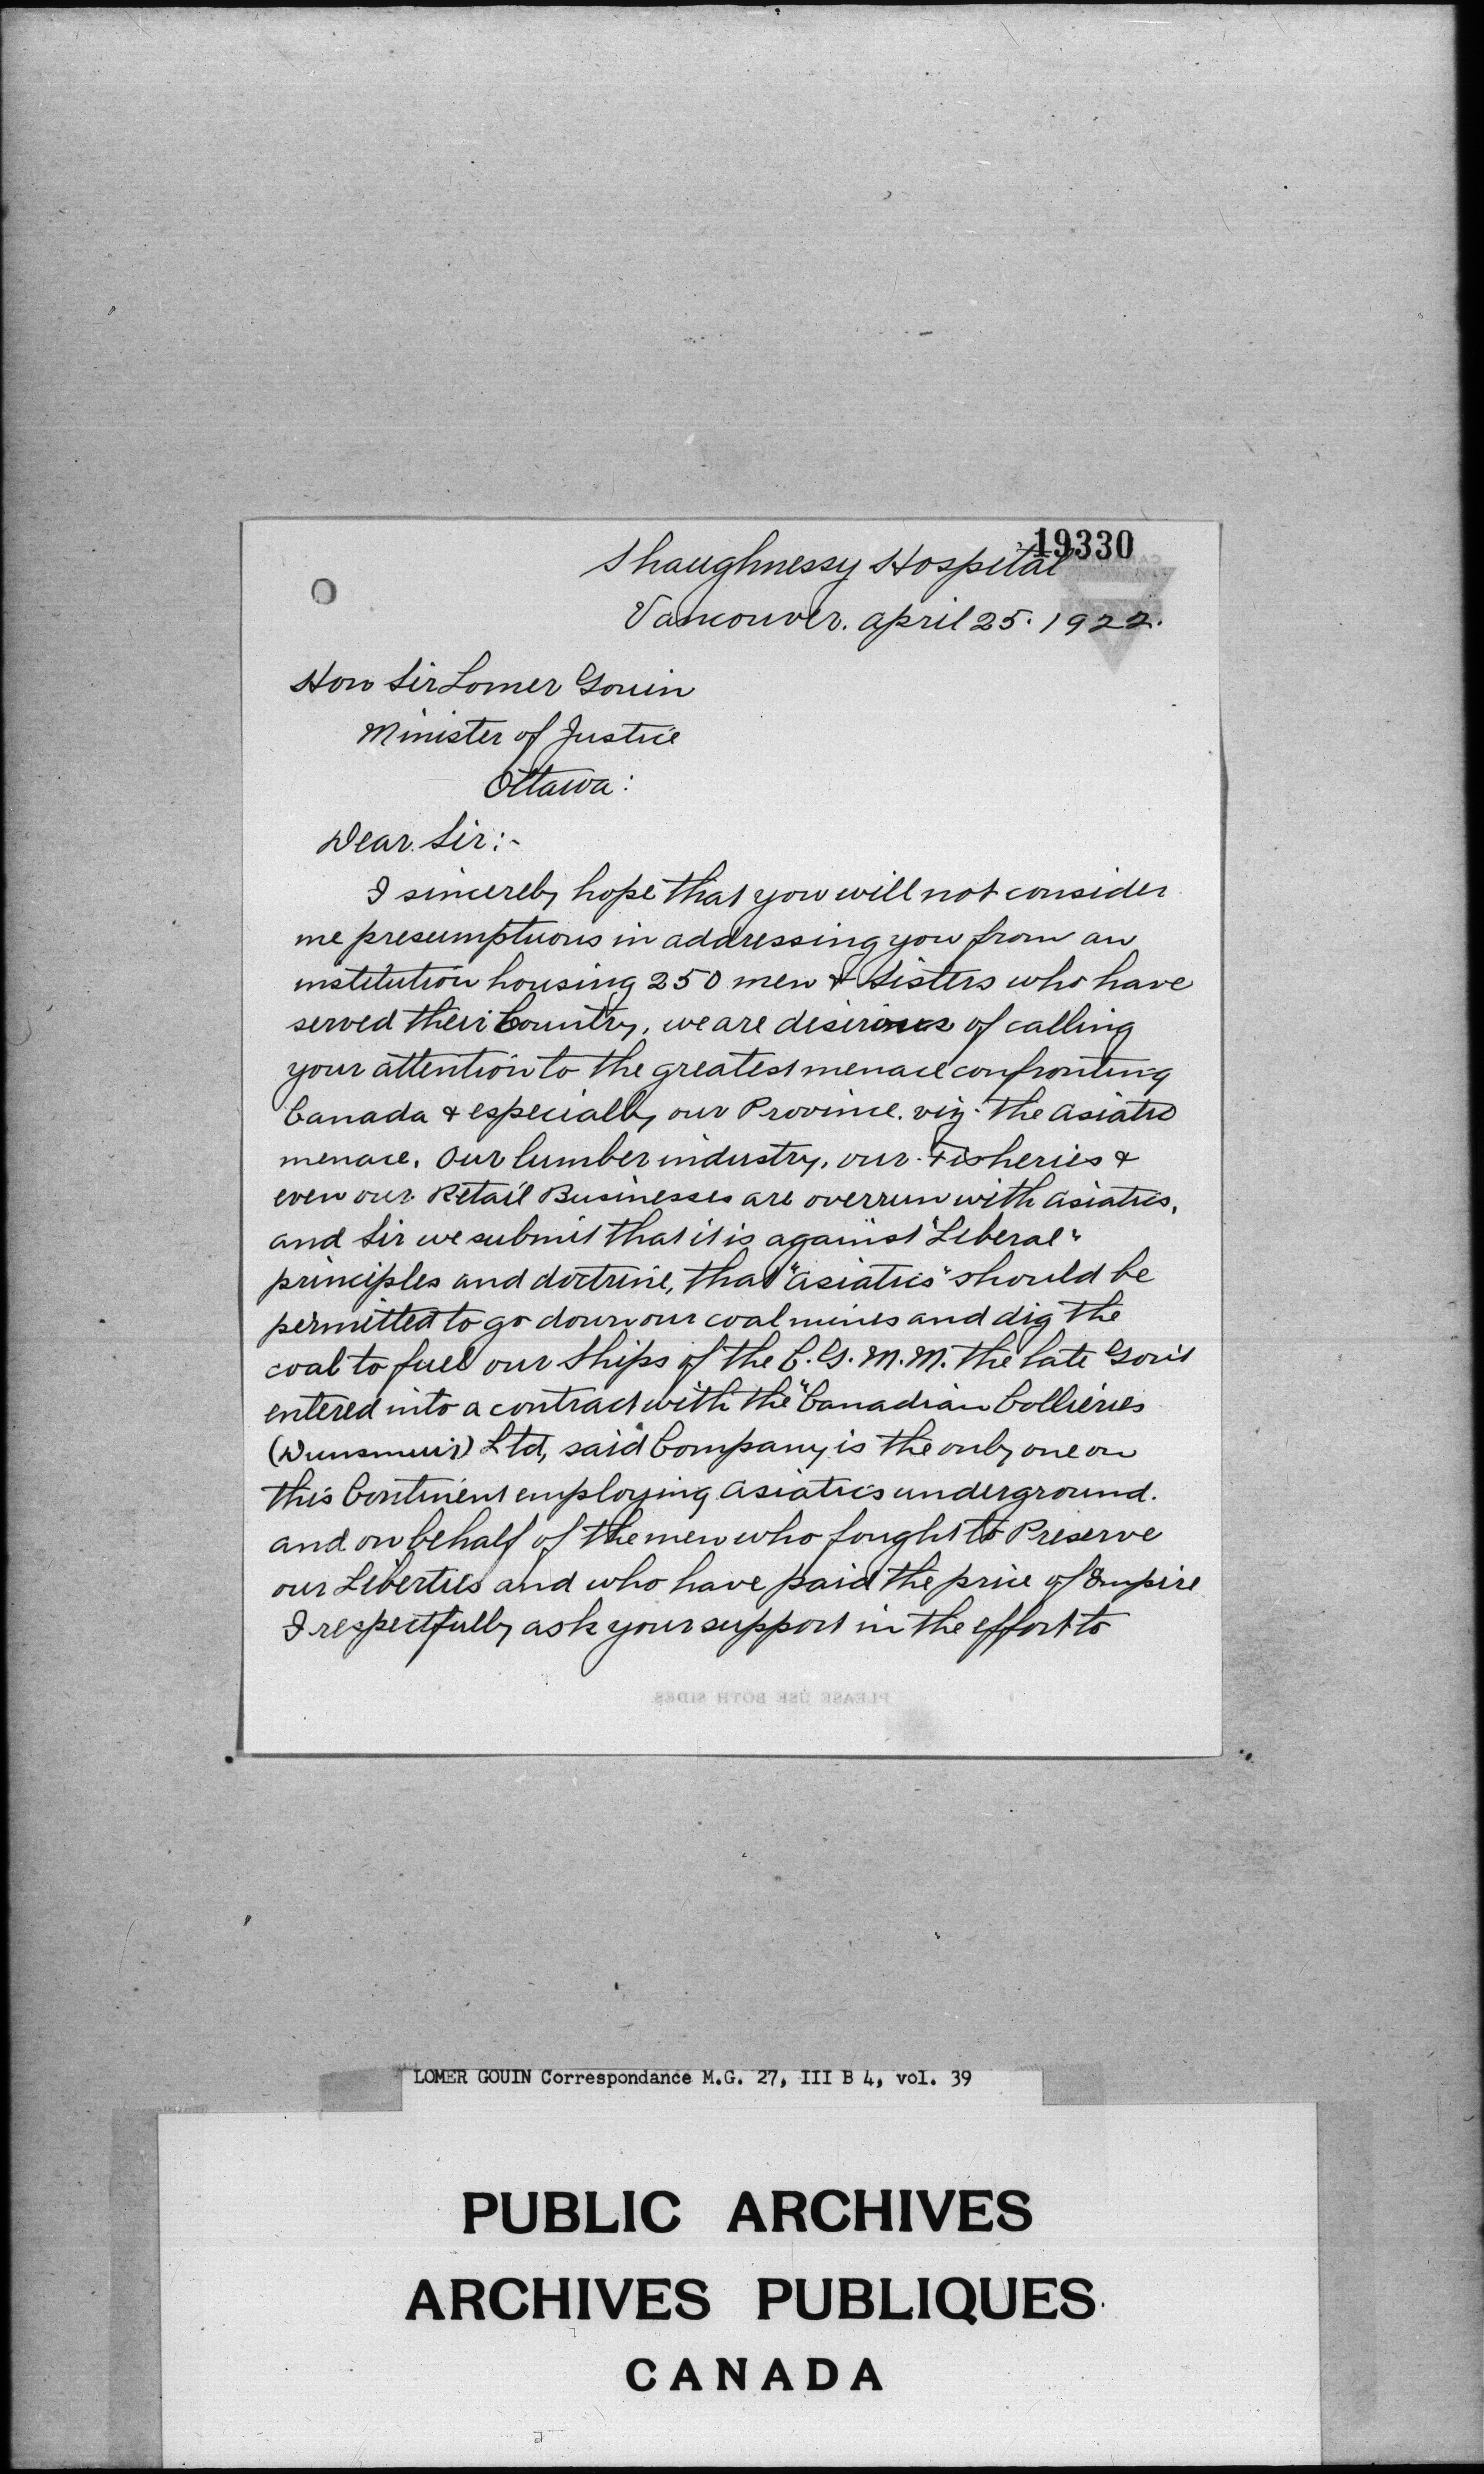 19330
Shaughnessy Hospital
Vancouver. april 25. 1922.
Hon Sir Lomer Gouin
Minister of Justice
Ottawa:
Dear Sir:-
I sincerely hope that you will not consider
me presumptuous in addressing you from an
institution housing 250 men & Sisters who have
served their Country, we are desirous of calling
your attention to the greatest menace confronting
Canada & especially our Province. viz: the asiatic
menace. Our lumber industry, our Fisheries &
even our Retail Businesses are overrun with asiatics,
and Sir we submit that it is against "Liberal"
principles and doctrine, that "asiatics" should be
permitted to go down our coal mines and dig the
coal to fuel our Ships of the C. G. M. M. the late Gov't
entered into a contract with the "Canadian Collieries
(Dunsmuir) Ltd," said Company is the only one on
this Continent employing asiatics underground.
and on behalf of the men who fought to Preserve
our Liberties and who have paid the price of Empire
I respectfully ask your support in the effort to
PLEASE USE BOTH SIDES
LOMER GOUIN Correspondance M.G. 27, III B 4, vol. 39
PUBLIC ARCHIVES
ARCHIVES PUBLIQUES
CANADA